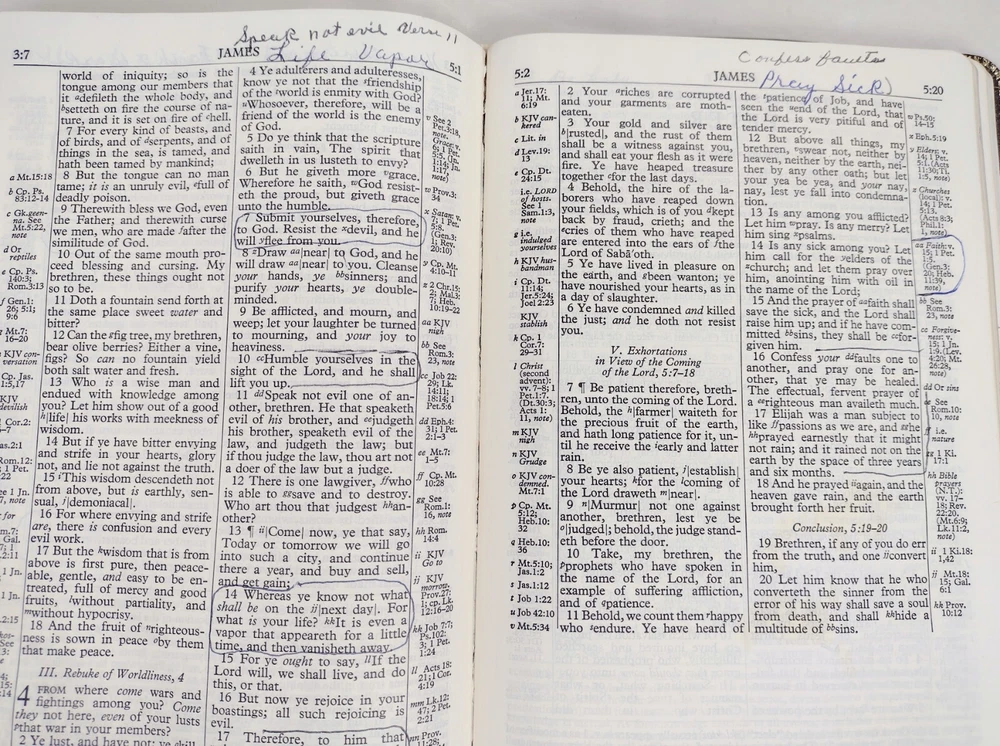 Speak not evil Verse 11
3:7
JAMES
Life Vapor
5:1
a Mt.15:18
b Cp. Ps.
83:12-14
c Gk. geen-
na. See
Mt.5:22,
note
d Or
reptiles
e Cp. Ps.
140:3;
Rom.3:13
f Gen.1:
26; 5:1;
9:6
Mt.7:
16-20
KJV con-
versation
Cp. Jas.
1:5,17
KJV
devilish
world of iniquity; so is the
tongue among our members that
it adefileth the whole body, and
bsetteth on fire the course of na-
ture, and it is set on fire of chell.
7 For every kind of beasts, and
of birds, and of dserpents, and of
things in the sea, is tamed, and
hath been tamed by mankind;
8 But the tongue can no man
tame; it is an unruly evil, efull of
deadly poison.
9 Therewith bless we God, even
the Father; and therewith curse
we men, who are made fafter the
similitude of God.
10 Out of the same mouth pro-
ceed blessing and cursing. My
brethren, these things ought not
so to be.
11 Doth a fountain send forth at
the same place sweet water and
bitter?
12 Can the gfig tree, my brethren,
bear olive berries? Either a vine,
figs? So can no fountain yield
both salt water and fresh.
13 Who is a wise man and
endued with knowledge among
you? Let him show out of a good
h|life| his works with meekness of
wisdom.
14 But if ye have bitter envying
and strife in your hearts, glory
not, and lie not against the truth.
15 iThis wisdom descendeth not
from above, but is earthly, sen-
sual, j|demoniacal|.
16 For where envying and strife
are, there is confusion and every
evil work.
17 But the kwisdom that is from
above is first pure, then peace-
able, gentle, and easy to be en-
treated, full of mercy and good
fruits, lwithout partiality, and
mwithout hypocrisy.
18 And the fruit of nrighteous-
ness is sown in peace oby them
that make peace.
III. Rebuke of Worldliness, 4
4 FROM where come wars and
fightings among you? Come
they not here, even of your lusts
pthat war in your members?
2 Ye lust, and have not: ye kill
4 Ye adulterers and adulteresses,
know ye not that the tfriendship
of the world is enmity with God?
uWhosoever, therefore, will be a
friend of the world is the enemy
of God.
5 Do ye think that the scripture
saith in vain, The spirit that
dwelleth in us lusteth to envy?
6 But he giveth more vgrace.
Wherefore he saith, wGod resist-
eth the proud, but giveth grace
unto the humble.
7 Submit yourselves, therefore,
to God. Resist the xdevil, and he
will yflee from you.
8 zDraw aa|near| to God, and he
will draw aa|near| to you. Cleanse
your hands, ye bbsinners; and
purify your hearts, ye double-
minded.
9 Be afflicted, and mourn, and
weep; let your laughter be turned
to mourning, and your joy to
heaviness.
10 ccHumble yourselves in the
sight of the Lord, and he shall
lift you up.
11 ddSpeak not evil one of an-
other, brethren. He that speaketh
evil of his brother, and eejudgeth
his brother, speaketh evil of the
law, and judgeth the law; but
if thou judge the law, thou art not
a doer of the law but a judge.
12 There is one lawgiver, ffwho
is able to ggsave and to destroy.
Who art thou that judgest hhan-
other?
13 ¶ ii|Come| now, ye that say,
Today or tomorrow we will go
into such a city, and continue
there a year, and buy and sell,
and get gain;
14 Whereas ye know not what
shall be on the jj|next day|. For
what is your life? kkIt is even a
vapor that appeareth for a little
time, and then vanisheth away.
15 For ye ought to say, llIf the
Lord will, we shall live, and do
this, or that.
16 But now ye rejoice in your
boastings; all such rejoicing is
evil.
17 Therefore, to him that
w Prov.3:
34
y Cp. Mt.
4:10-11
z 2 Chr.15:
2; Mal.3:
7; Heb.
10:19-22
aa KJV
nigh
bb See
Rom.3:
23, note
cc Job 22:
29; Lk.
14:11;
18:14; 1
Pet.5:6
dd Eph.4:
31; 1 Pet.
2:1-3
ee Mt.7:
1-5
ff Cp. Mt.
10:28
gg See
Rom.1:
16, note
hh Rom.
14:4
ii KJV
Go to
jj KJV
morrow.
Prov.27:
1; cp. Lk.
12:16-20
kk Job 7:7;
Ps.102:
3; 1 Pet.
1:24
ll Acts 18:
21; 1 Cor.
4:19
mm Lk.12:
47; 2 Pet.
2:21
Confess faults
5:2
JAMES
Pray Sick
5:20
a Jer.17:
11; Mt.
6:19
b KJV can-
kered
c Lit. in
d Lev.19:
13
e Cp. Dt.
24:15
f i.e. LORD
of hosts.
See 1
Sam.1:3,
note
g i.e.
indulged
yourselves
h KJV hus-
bandman
i Cp. Dt.
11:14;
Jer.5:24;
Joel 2:23
j KJV
stablish
k Cp. 1
Cor.7:
29-31
l Christ
(second
advent):
vv.7-8; 1
Pet.1:7.
(Dt.30:3;
Acts 1:
11, note)
m KJV
nigh
n KJV
Grudge
o KJV con-
demned.
Mt.7:1
p Cp. Mt.
5:12;
Heb.10:
32
q Heb.10:
36
r Mt.5:10;
Jas.1:2
s Jas.1:12
t Job 1:22
u Job 42:10
v Mt.5:34
2 Your ariches are corrupted
and your garments are moth-
eaten.
3 Your gold and silver are
b|rusted|, and the rust of them
shall be a witness against you,
and shall eat your flesh as it were
fire. Ye have heaped treasure
together cfor the last days.
4 Behold, the hire of the la-
borers who have reaped down
your fields, which is of you dkept
back by fraud, crieth; and the
ecries of them who have reaped
are entered into the ears of fthe
Lord of Sabaoth.
5 Ye have lived in pleasure on
the earth, and gbeen wanton; ye
have nourished your hearts, as in
a day of slaughter.
6 Ye have condemned and killed
the just; and he doth not resist
you.
V. Exhortations
in View of the Coming
of the Lord, 5:7-18
7 ¶ Be patient therefore, breth-
ren, unto the coming of the Lord.
Behold, the h|farmer| waiteth for
the precious fruit of the earth,
and hath long patience for it, un-
til he receive the iearly and latter
rain.
8 Be ye also patient, j|establish|
your hearts; kfor the lcoming of
the Lord draweth m|near|.
9 n|Murmur| not one against
another, brethren, lest ye be
o|judged|; behold, the judge stand-
eth before the door.
10 Take, my brethren, the
pprophets who have spoken in
the name of the Lord, for an
example of suffering affliction,
and of qpatience.
11 Behold, we count them rhappy
who sendure. Ye have heard of
the tpatience of Job, and have
seen the uend of the Lord, that
the Lord is very pitiful and of
tender mercy.
12 But above all things, my
brethren, vswear not, neither by
heaven, neither by the earth, nei-
ther by any other oath; but let
your yea be yea, and your nay,
nay, lest ye fall into condemna-
tion.
13 Is any among you afflicted?
Let him wpray. Is any merry? Let
him sing xpsalms.
14 Is any sick among you? Let
him call for the yelders of the
zchurch; and let them pray over
him, anointing him with oil in
the name of the Lord;
15 And the prayer of aafaith shall
save the sick, and the Lord shall
raise him up; and if he have com-
mitted bbsins, they shall be ccfor-
given him.
16 Confess your ddfaults one to
another, and pray one for an-
other, that ye may be healed.
The effectual, fervent prayer of
a eerighteous man availeth much.
17 Elijah was a man subject to
like ffpassions as we are, and gghe
hhprayed earnestly that it might
not rain; and it rained not on the
earth by the space of three years
and six months.
18 And he prayed iiagain, and the
heaven gave rain, and the earth
brought forth her fruit.
Conclusion, 5:19-20
19 Brethren, if any of you do err
from the truth, and one jjconvert
him,
20 Let him know that he who
converteth the sinner from the
error of his way shall save a soul
from death, and shall kkhide a
multitude of bbsins.
w Ps.50:
14-15
x Eph.5:19
y Elders: v.
14; 1 Pet.
5:1. (Acts
11:30; Ti.
1:5, note)
z Churches
(local): v.
14; 1 Pet.
5:13.
(Acts 8:3;
Phil.1:
1, note)
aa Faith: v.
15; 1 Pet.
1:5.
(Gen.3:
20; Heb.
11:39,
note)
bb See
Rom.3:
23, note
cc Forgive-
ness: v.
15; 1 Jn.
1:9. (Lev.
4:20; Mt.
26:28,
note)
dd Or sins
ee See
Rom.10:
10, note
ff i.e.
nature
gg 1 Ki.
17:1
hh Bible
prayers
(N.T.):
vv.17-
18; Rev.
22:20.
(Mt.6:9;
Lk.11:2,
note)
ii 1 Ki.18:
1,42
jj Mt.18:
15; Gal.
6:1
kk Prov.
10:12